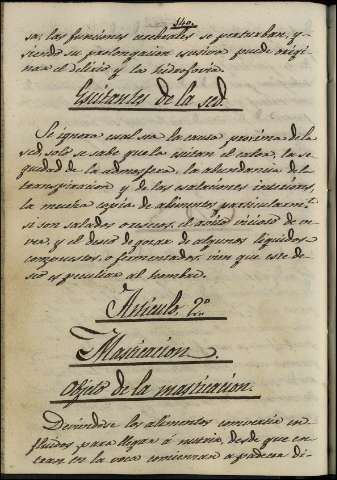 140.
sa; las funciones cerebrales se perturban, y
siendo su prolongacion escesiva puede origi
nar el delirio y la hidrofovia.
Escitantes de la sed.
Se ignora cual sea la causa proxima de la
sed, solo se sabe que la escitan el calor, la se
quedad de la admosfera, la abundancia de la
transpiracion y de las esalaciones
la mucha copia de alimentos particularmte
si son salados o secos, el avito vicioso de ve
ver, y el deseo de gozar de algunos liquidos
compuestos, o fermentados, vien que este de
seo es peculiar al hombre.
Articulo 2º
Masticacion.
Objeto de la masticacion.
Deviendose los alimentos convertir en
fluidos para llegar á nutrir, desde que en-
tran en la voca comienzan a padecer di-